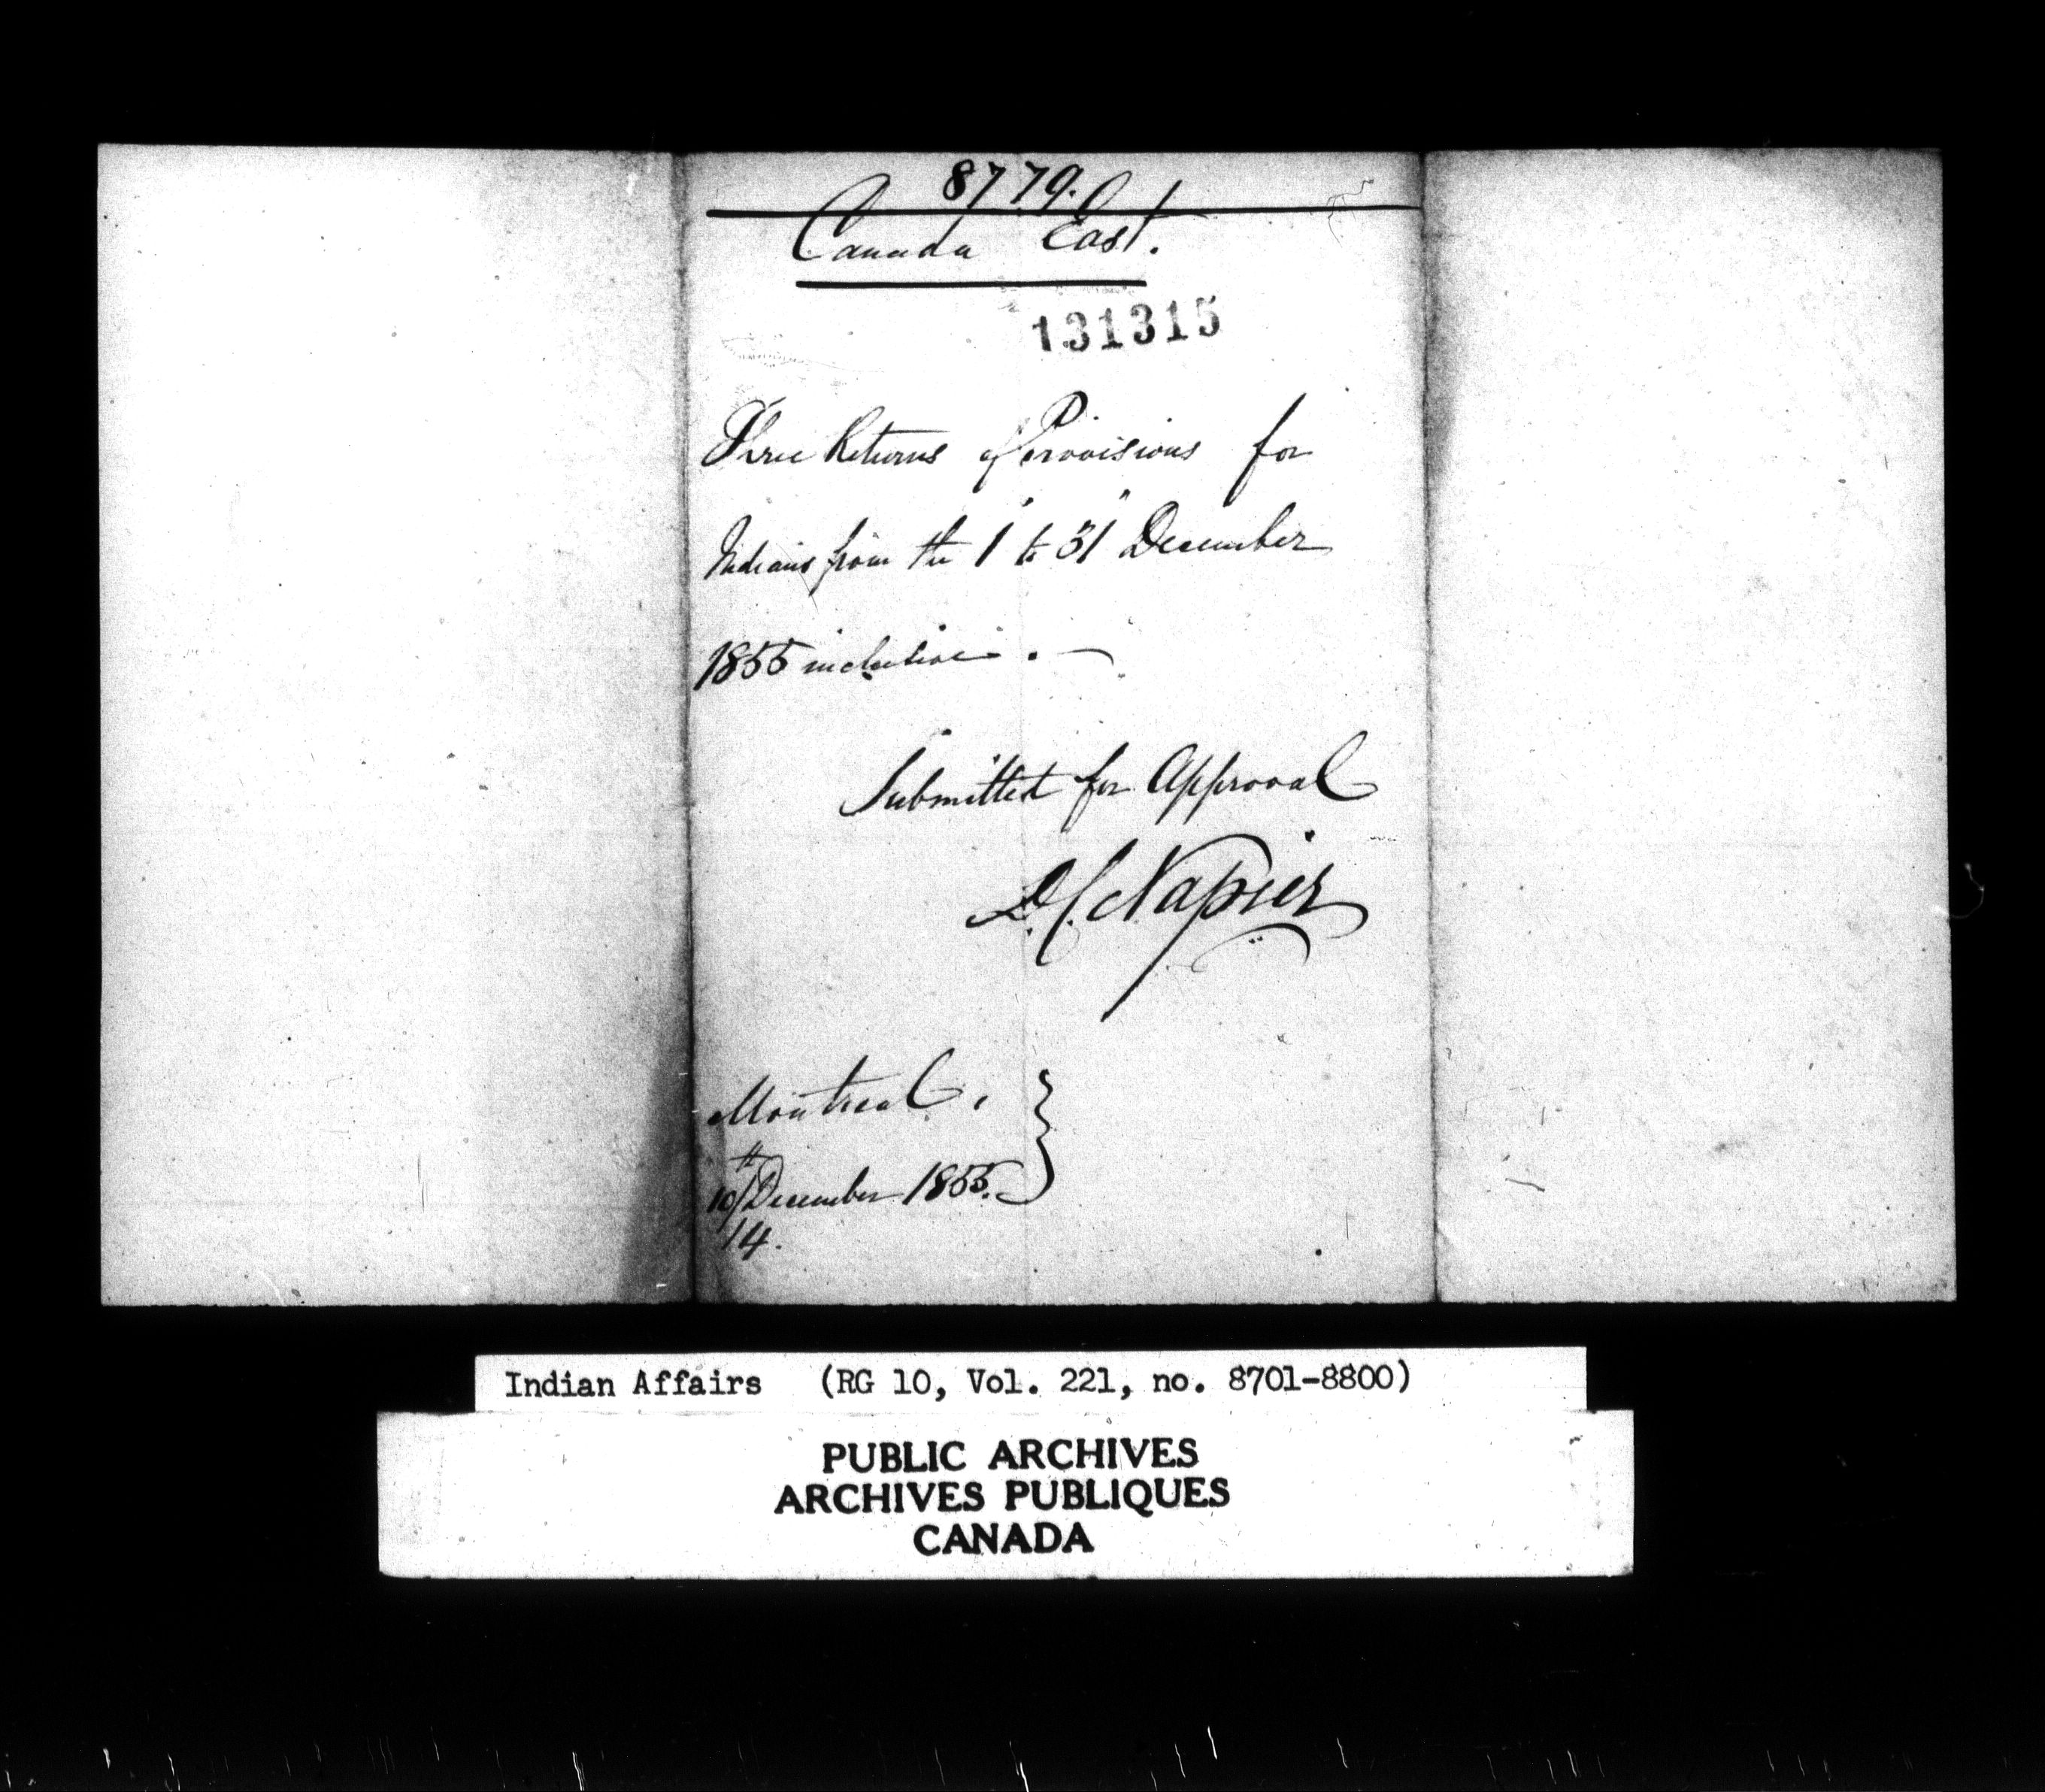 8779.
Canada East.
131315
Three Returns of Provisions for
Indians from the 1" to 31" December
1855 inclusive. —
Submitted for Approval
D. C. Napier
Montreal,
10th December 1855.
14.
Indian Affairs (RG 10, Vol. 221, no. 8701-8800)
PUBLIC ARCHIVES
ARCHIVES PUBLIQUES
CANADA